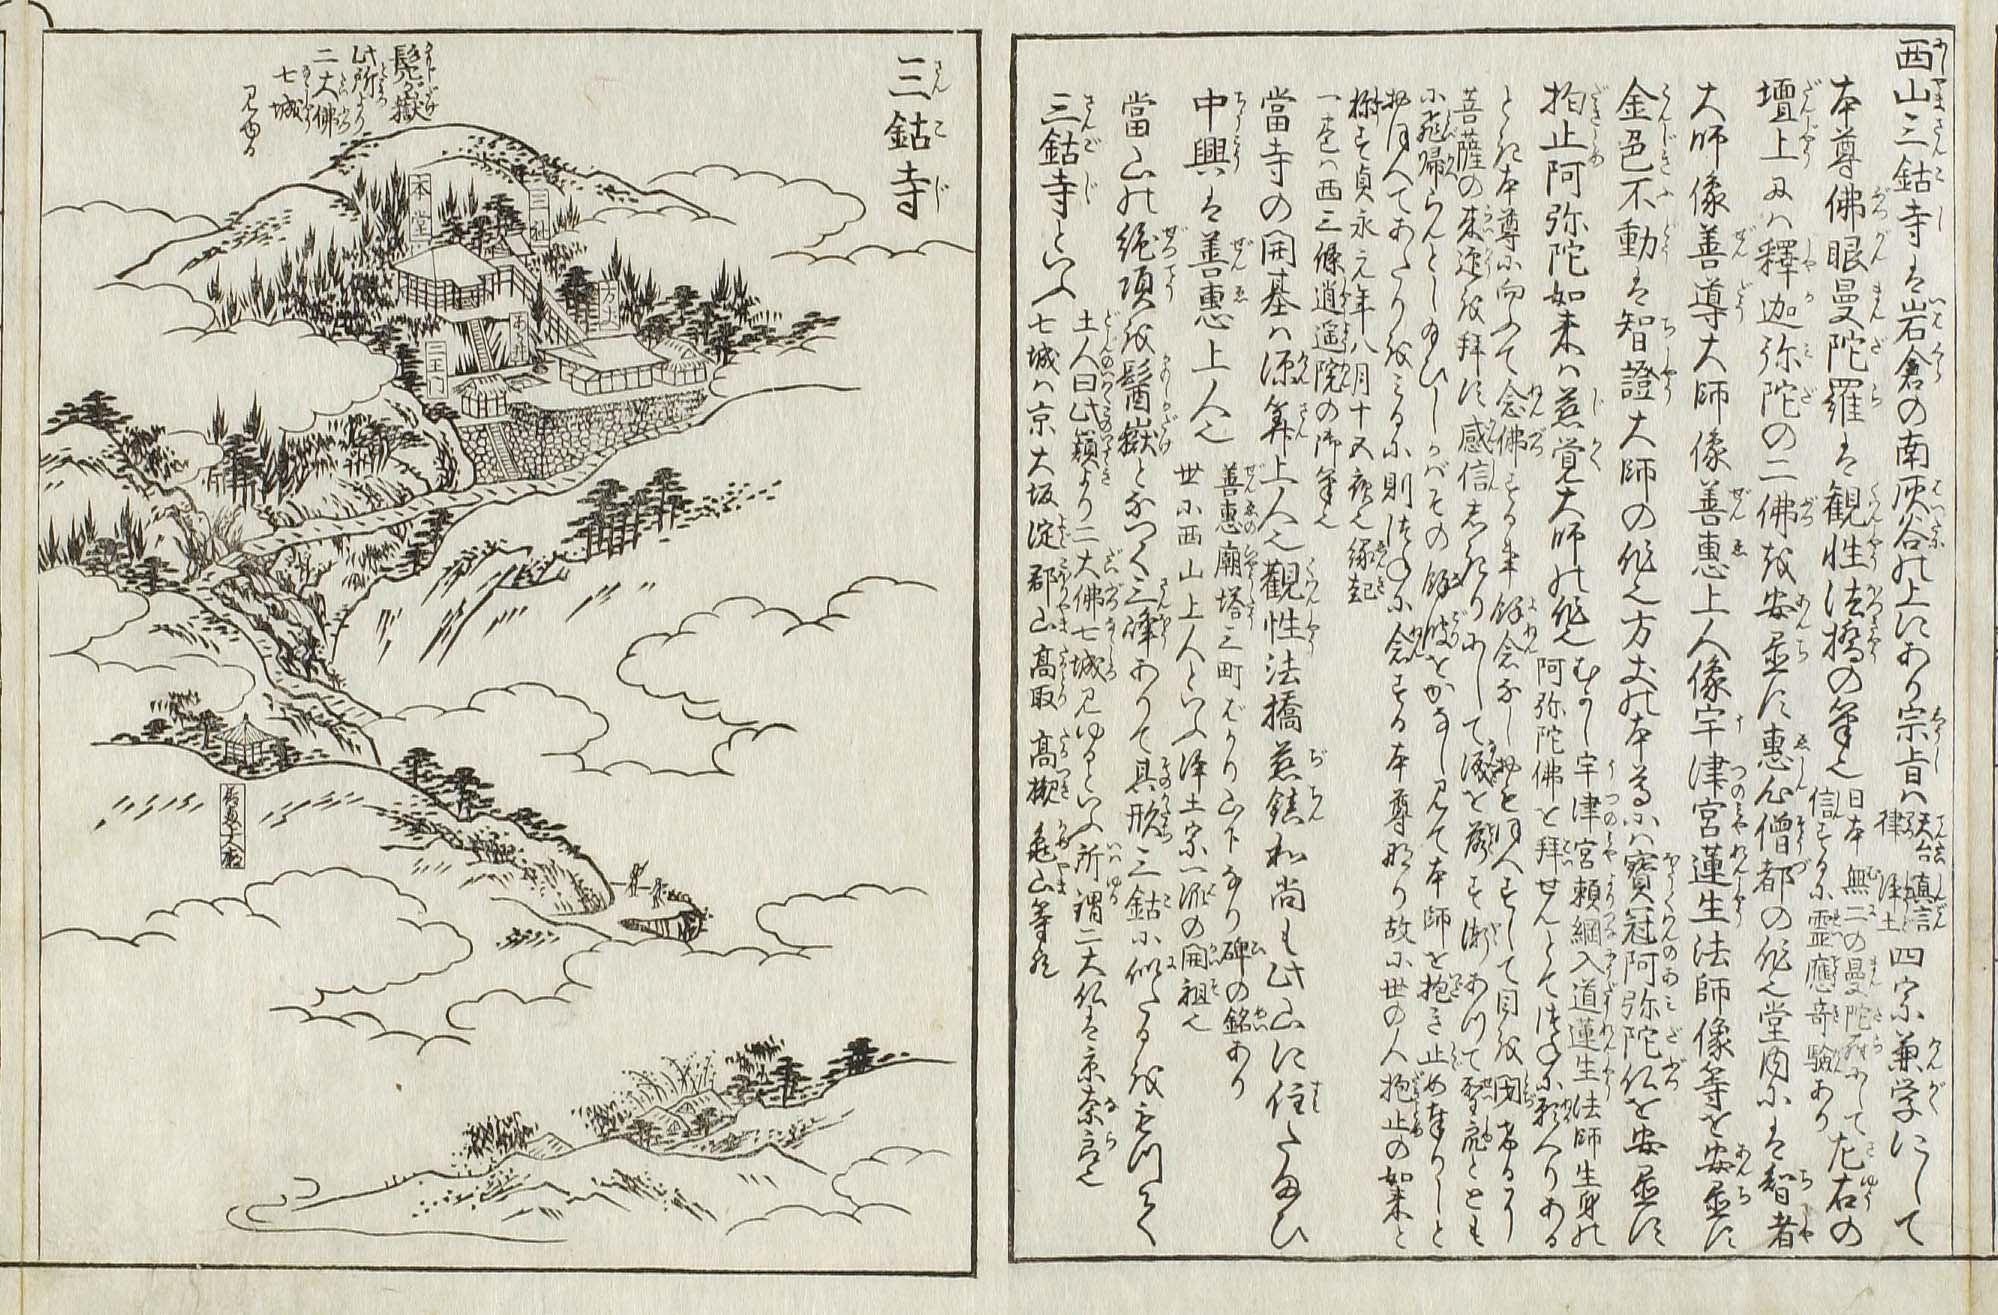 西山三鈷寺は岩倉の南灰谷の上にあり宗旨は天台真言律浄土四宗兼学にして
本尊佛眼曼陀羅は観性法橋の筆也日本無二の曼陀羅にして左右の
信ずるに霊應奇驗あり
壇上には釋迦弥陀の二佛を安置す惠心僧都の作也堂内には智者
大師像善導大師像善惠上人像宇津宮蓮生法師像等を安置す
金色不動は智證大師の作也方丈の本尊には寶冠阿弥陀仏を安置す
抱止阿弥陀如来は慈覚大師の作也むかし宇津宮頼綱入道蓮生法師生身の
阿弥陀佛を拝せんとてつねに願へりある
とき本尊に向ふて念佛する事餘念なし
して目を閉けるに
菩薩の来迎を拝す感信
して涙を落す漸あつて聖衆とともに
飛帰らんとし給ひしがばその餘波をかなしみて本師を抱き止め奉りしと
則つねに念ずる本尊なり故に世の人抱止の如来と
称す貞永元年八月十五夜也縁起
一巻は西三條逍遥院の御筆也
當寺の開基は源算上人也観性法橋慈鎮和尚も此山に住たまひ
中興は善惠上人也善惠廟塔三町ばかり山下なり碑の銘あり
世に西山上人といふ浄土宗一派の開祖也
當山の絶頂を髻嶽となづく三峰ありて其形三鈷に似たるをもつて
三鈷寺といふ土人曰此嶺より二大佛七城見ゆるといふ所謂二大仏は京奈良也
七城は京大坂淀郡山高取高槻亀山等也
三鈷寺
さんこじ
髻嶽
此所より
二大佛
七城
見ゆる
三社
本堂
方丈
二王門